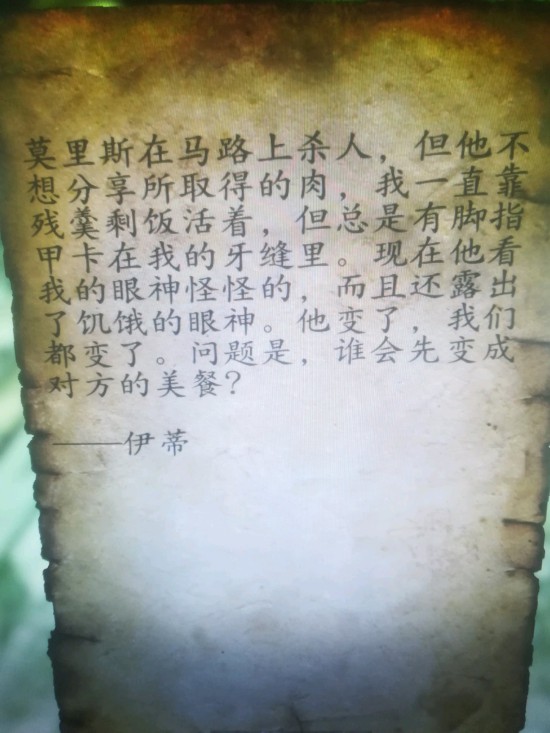 莫里斯在马路上杀人，但他不
想分享所取得的肉，我一直靠
残羹剩饭活着，但总是有脚指
甲卡在我的牙缝里。现在他看
我的眼神怪怪的，而且还露出
了饥饿的眼神。他变了，我们
都变了。问题是，谁会先变成
对方的美餐？
——伊蒂